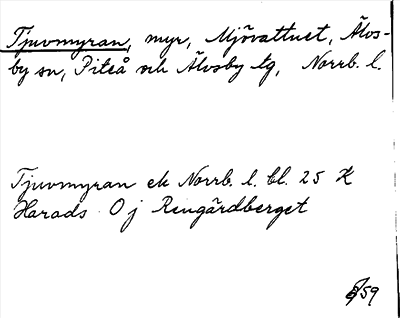 Tjuvmyran, myr, Mjövattnet, Älvs-
by sn, Piteå och Älvsby tg, Norrb. l.
Tjuvmyran ek Norrb. l. bl. 25 K
Harads O j Rengårdberget
59